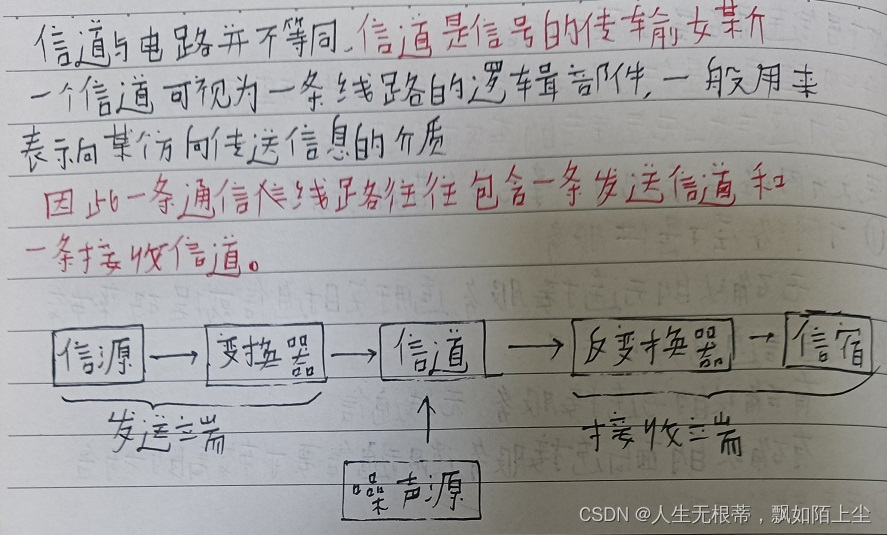 信道与电路并不等同、信道是信号的传输媒介
一个信道可视为一条线路的逻辑部件,一般用来
表示向某个方向传送信息的介质
因此一条通信线路往往包含一条发送信道和
一条接收信道。
信源 → 变换器 → 信道 → 反变换器 → 信宿
发送端 接收端
噪声源
CSDN @人生无根蒂，飘如陌上尘